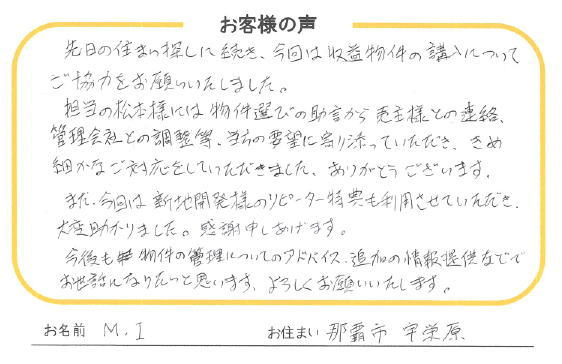 お客様の声
先日の住まい探しに続き、今回は収益物件の購入について
ご協力をお願いいたしました。
担当の松本様には物件選びの助言から売主様との連絡、
管理会社との調整等、こちらの要望に寄り添っていただき、きめ
細かなご対応をしていただきました、ありがとうございます。
また、今回は新地開発様のリピーター特典も利用させていただき、
大変助かりました。感謝申しあげます。
今後も物件の管理についてのアドバイス、追加の情報提供などで
お世話になりたいと思います、よろしくお願いいたします。
お名前 M.I お住まい 那覇市 宇栄原